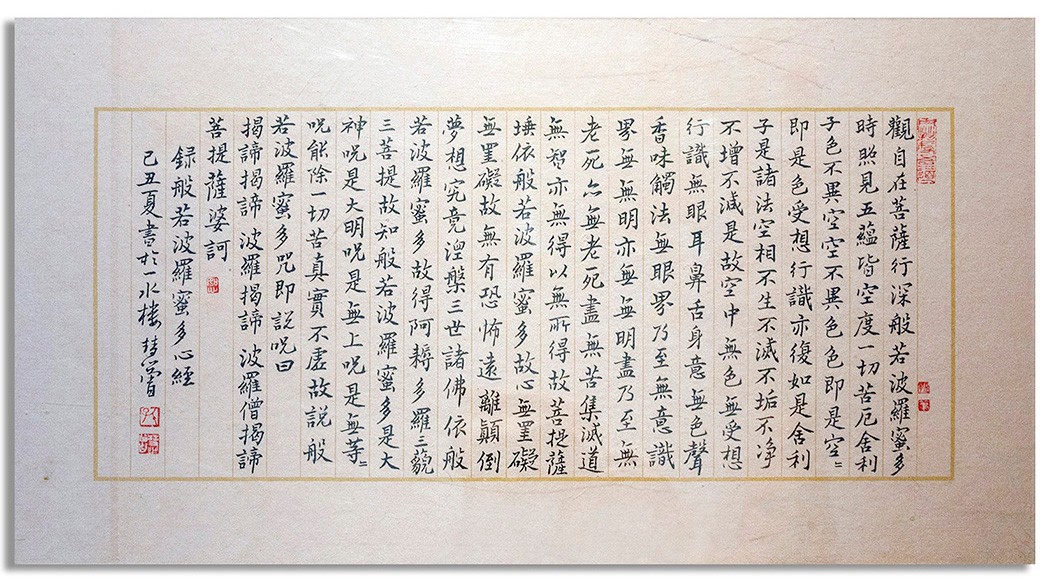 觀自在菩薩行深般若波羅蜜多
時照見五蘊皆空度一切苦厄舍利
子色不異空空不異色色即是空〻
即是色受想行識亦復如是舍利
子是諸法空相不生不滅不垢不净
不增不減是故空中無色無受想
行識無眼耳鼻舌身意無色聲
香味觸法無眼界乃至無意識
界無無明亦無無明盡乃至無
老死亦無老死盡無苦集滅道
無智亦無得以無所得故菩提薩
埵依般若波羅蜜多故心無罣礙
無罣礙故無有恐怖遠離顛倒
夢想究竟涅槃三世諸佛依般
若波羅蜜多故得阿耨多羅三藐
三菩提故知般若波羅蜜多是大
神咒是大明咒是無上咒是無等〻
咒能除一切苦真實不虛故說般
若波羅蜜多咒即說咒曰
揭諦揭諦 波羅揭諦 波羅僧揭諦
菩提薩婆訶
録般若波羅蜜多心經
己丑夏書於一水楼